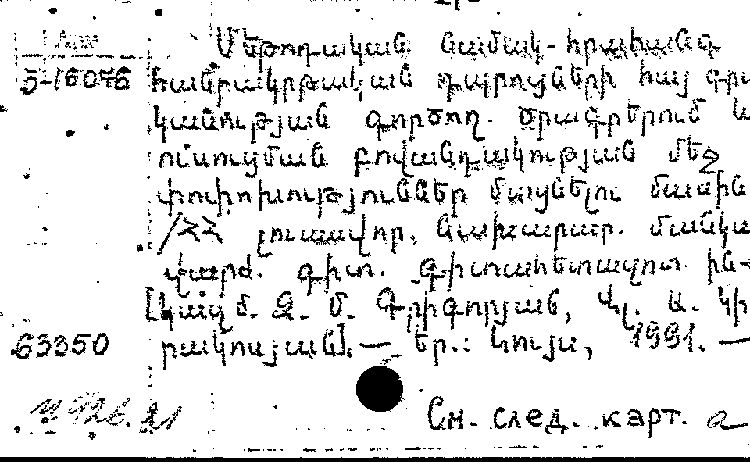 Մեթոդական նամակ-հրահանգ
5-16046 հանրակրթական դպրոցների հայ գրա
կանության գործող. ծրագրերում և
ուսուցման բովանդակության մեջ
փոփոխություններ մտցնելու մասին
/ՀՀ լուսավոր. նախարար. մանկա
վարժ. գիտ. գիտահետազոտ. ին-
[կազմ. Ջ. Մ. Գրիգորյան, Վլ. Ա. Կի
63350 րակոսյան].— Եր.: Լույս, 1991.—
См. след. карт.